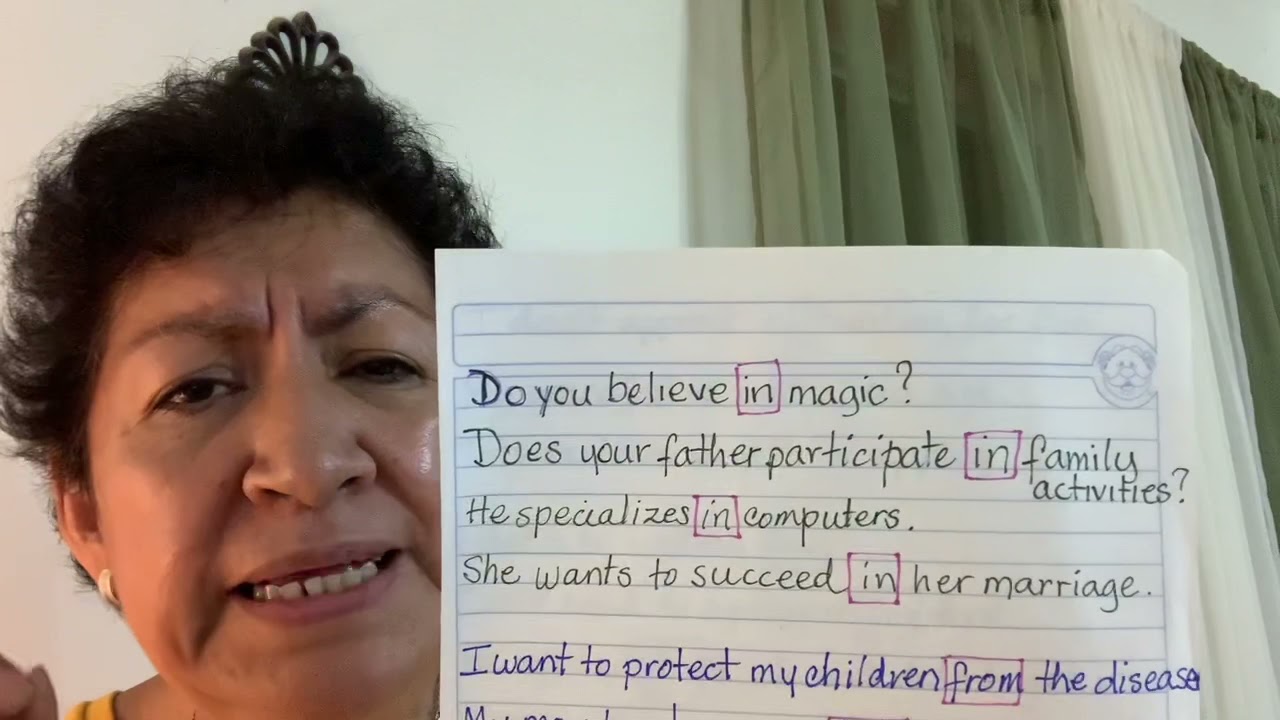 Do you believe in magic?
Does your father participate in family
activities?
He specializes in computers.
She wants to succeed in her marriage.
I want to protect my children from the disease